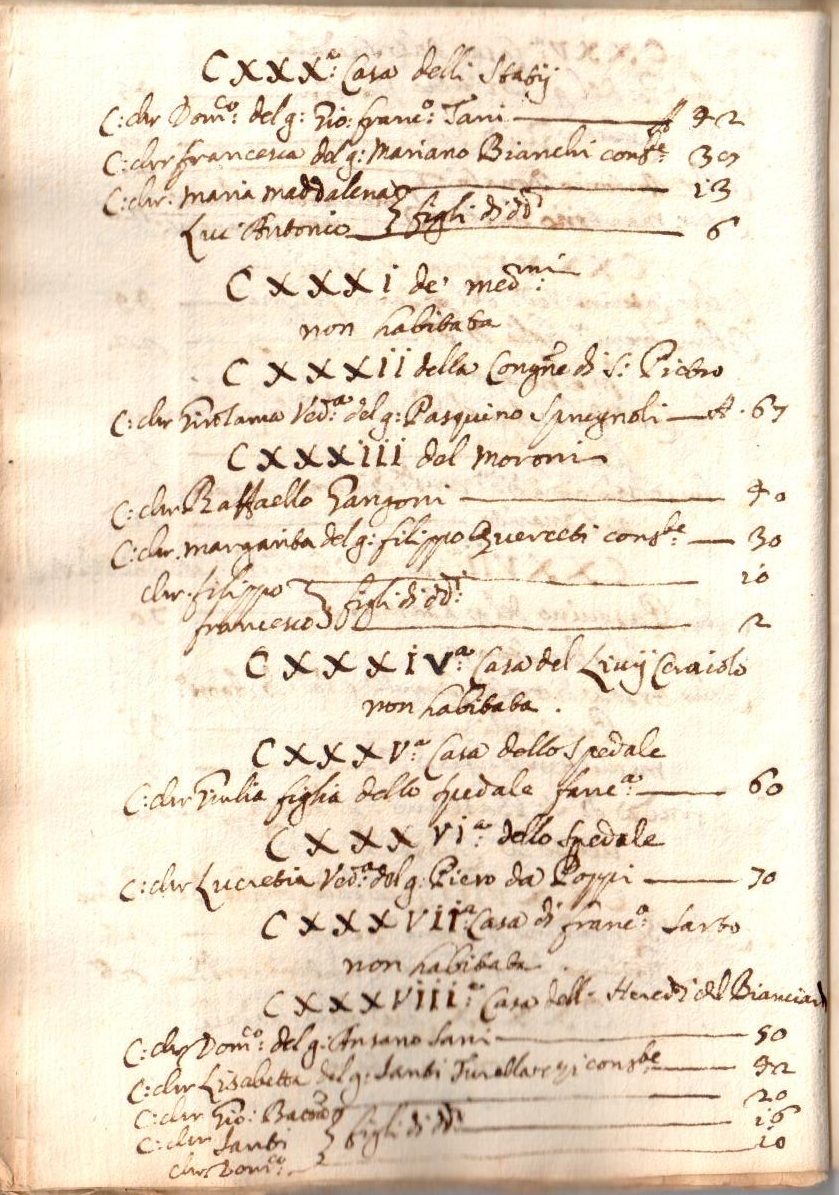 CXXXª: Casa delli Stasij
C: chr Domco: del g: Gio: francº: Tani — A 42
C: chr francesca del g: Mariano Bianchi consbe: 39
C: chr: maria maddalena — 13
Luc' Antonio figli di dd'i — 6
CXXXI de' medmi:
non habitata
CXXXII della Congne di S: Pietro
C: chr Girolama Vedª: del g: Pasquino Spucgnoli — A. 67
CXXXIII del Moroni
C: chr Raffaello Gangoni — 40
C: chr. margarita del g: filippo Querceti consbe: — 30
chr. filippo — 10
francesco figli di dd'i: — 2
CXXXIVª: Casa del Livij Ceraiolo
non habitata.
CXXXVª: Casa dello Spedale
C: chr Giulia figlia dello spedale fancª: — 60
CXXXVIª: dello Spedale
C: chr Lucretia Vedª: del g: Piero da Poppi — 70
CXXXVIIª: Casa di francº: Sarto
non habitata.
CXXXVIIIª: Casa dell- Heredi del
C: chr Domco: del g: Ansano Sani — 50
C: chr Lisabetta del g: Santi consbe — 42
C: chr Gio: Batta — 20
C: chr Santi figli di dd'i — 16
chr Domco: — 10